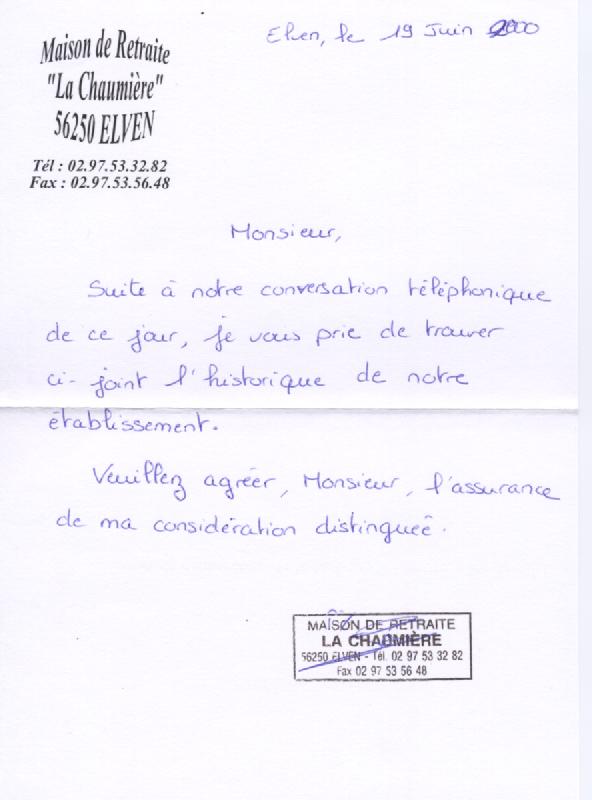 Elven, le 19 Juin 2000
Maison de Retraite
"La Chaumière"
56250 ELVEN
Tél : 02.97.53.32.82
Fax : 02.97.53.56.48
Monsieur,
Suite à notre conversation téléphonique
de ce jour, je vous prie de trouver
ci-joint l'historique de notre
établissement.
Veuillez agréer, Monsieur, l'assurance
de ma considération distinguée.
MAISON DE RETRAITE
LA CHAUMIÈRE
56250 ELVEN - Tél. 02 97 53 32 82
Fax 02 97 53 56 48